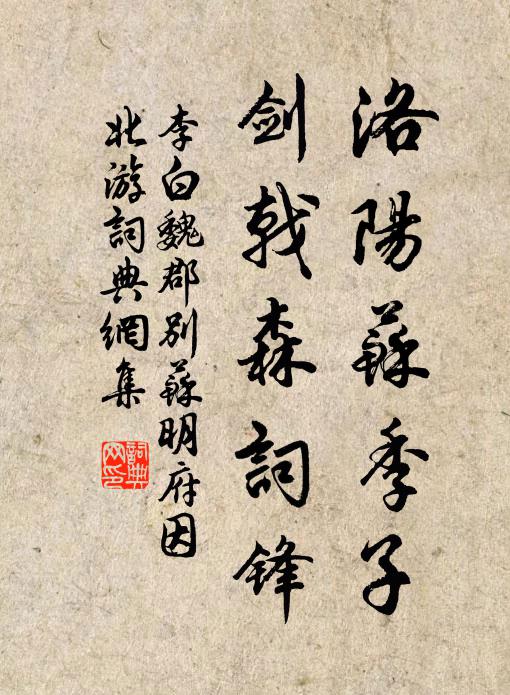 洛陽蘇季子
劍戟森詞锋
李白魏郡别蘇明府因
北游詞典網集
詞典
网印